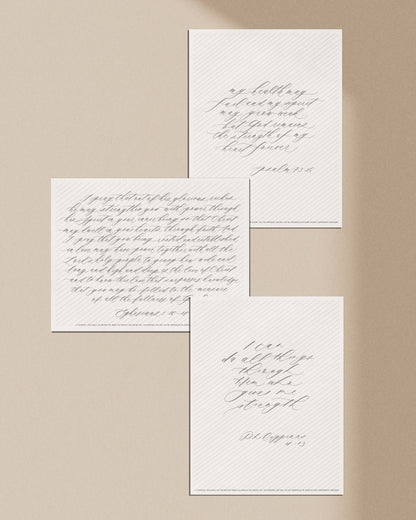 my health may
fail and my spirit
may grow weak
but God remains
the strength of my
heart forever
psalm 73:
I pray that out of his glorious riches
he may strengthen you with power through
his Spirit in your inner being so that Christ
may dwell in your hearts through faith And
I pray that you being rooted and established
in love may have power together with all the
Lord's holy people to grasp how wide and
long and high and deep is the love of Christ
and to know this love that surpasses knowledge
that you may be filled to the measure
of all the fullness of
Ephesians
I can
do all things
through
Him who
gives me
strength
Philippians
4:13